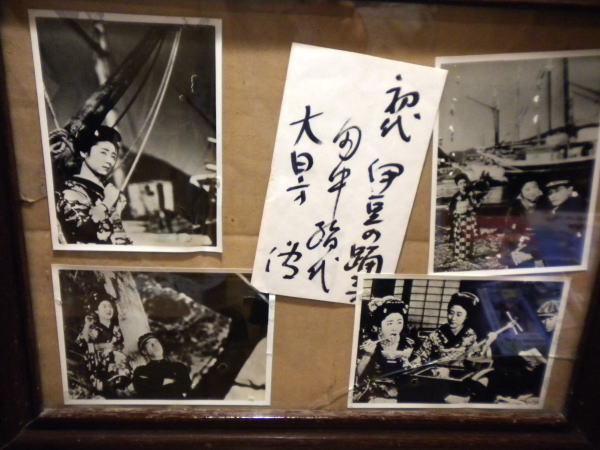 初代 伊豆の踊子
田中絹代
大日方 傳